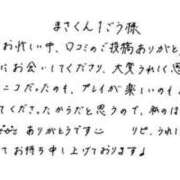 まさくん1ごう様
お忙しい中、口コミのご投稿ありがと
にお会いしてくださり、大変うれしく思
ニコだったのも、プレイが楽しいのも
てくださったからだと思うので、私の
ありがとうです リピ、うれし
てお待ち申し上げております♪